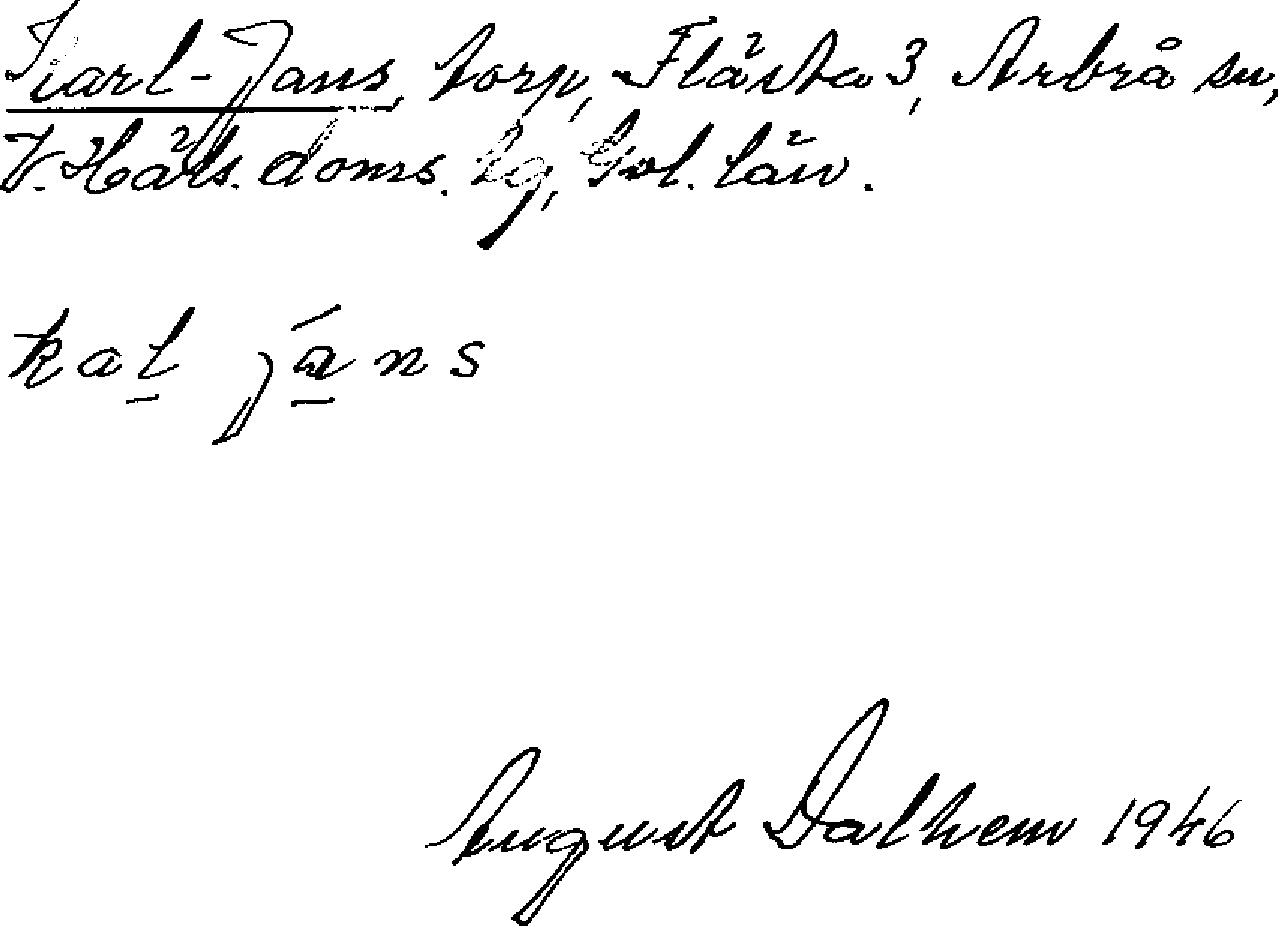 Karl-Jans, torp, Flästa 3, Arbrå sn,
V. Häls. doms. lg, Gvl. län.
kaḻ já̱ns
August Dalhem 1946